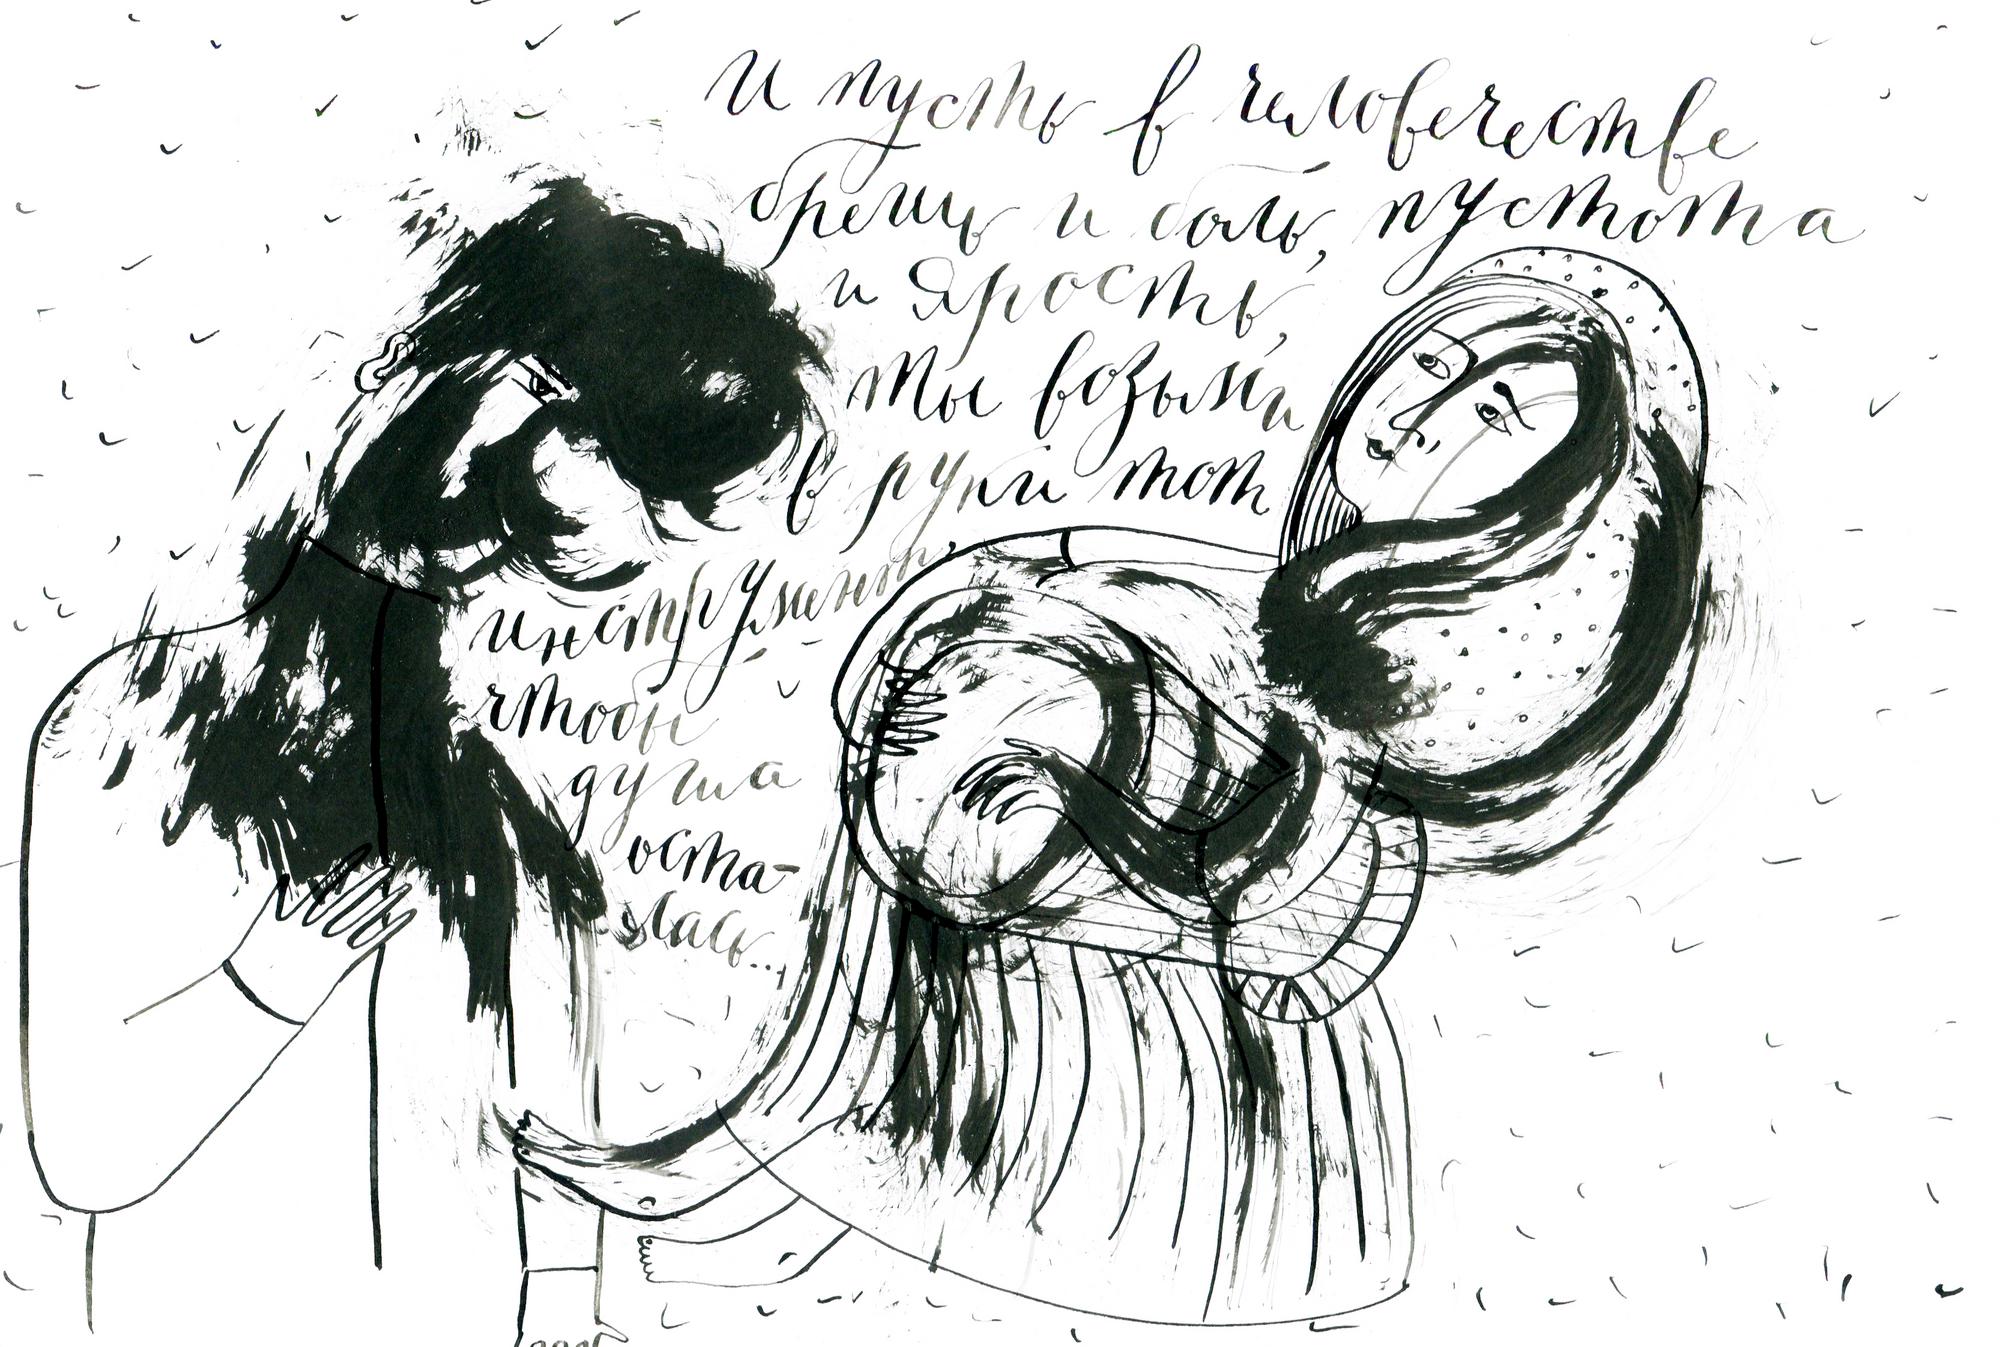 И пусть в человечестве
брешь и боль, пустота
и Ярость,
ты возьми
в руки тот
инструмент,
чтобы
душа
оста-
лась...